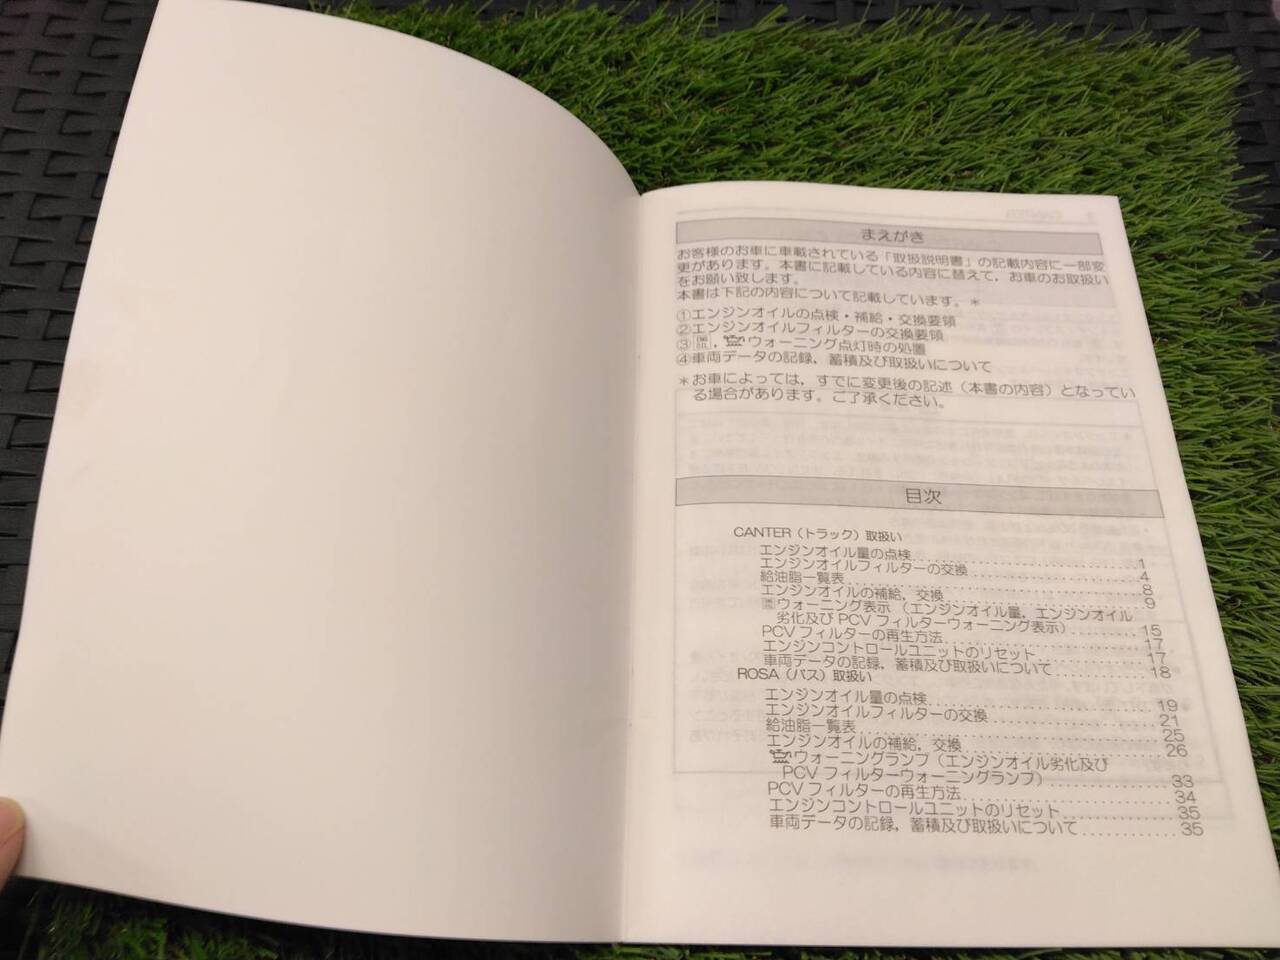 まえがき
お客様のお車に車載されている「取扱説明書」の記載内容に一部変
更があります。本書に記載している内容に替えて，お車のお取扱い
をお願い致します。
本書は下記の内容について記載しています。＊
①エンジンオイルの点検・補給・交換要領
②エンジンオイルフィルターの交換要領
③ ，ウォーニング点灯時の処置
④車両データの記録，蓄積及び取扱いについて
＊お車によっては，すでに変更後の記述（本書の内容）となってい
る場合があります。ご了承ください。
目次
CANTER（トラック）取扱い
エンジンオイル量の点検..............................1
エンジンオイルフィルターの交換......................4
給油脂一覧表......................................8
エンジンオイルの補給，交換..........................9
ウォーニング表示（エンジンオイル量，エンジンオイル
劣化及び PCV フィルターウォーニング表示）........15
PCV フィルターの再生方法..........................17
エンジンコントロールユニットのリセット..............17
車両データの記録，蓄積及び取扱いについて...........18
ROSA（バス）取扱い
エンジンオイル量の点検............................19
エンジンオイルフィルターの交換....................21
給油脂一覧表.....................................25
エンジンオイルの補給，交換........................26
ウォーニングランプ（エンジンオイル劣化及び
PCV フィルターウォーニングランプ）..............33
PCV フィルターの再生方法..........................34
エンジンコントロールユニットのリセット..............35
車両データの記録，蓄積及び取扱いについて...........35